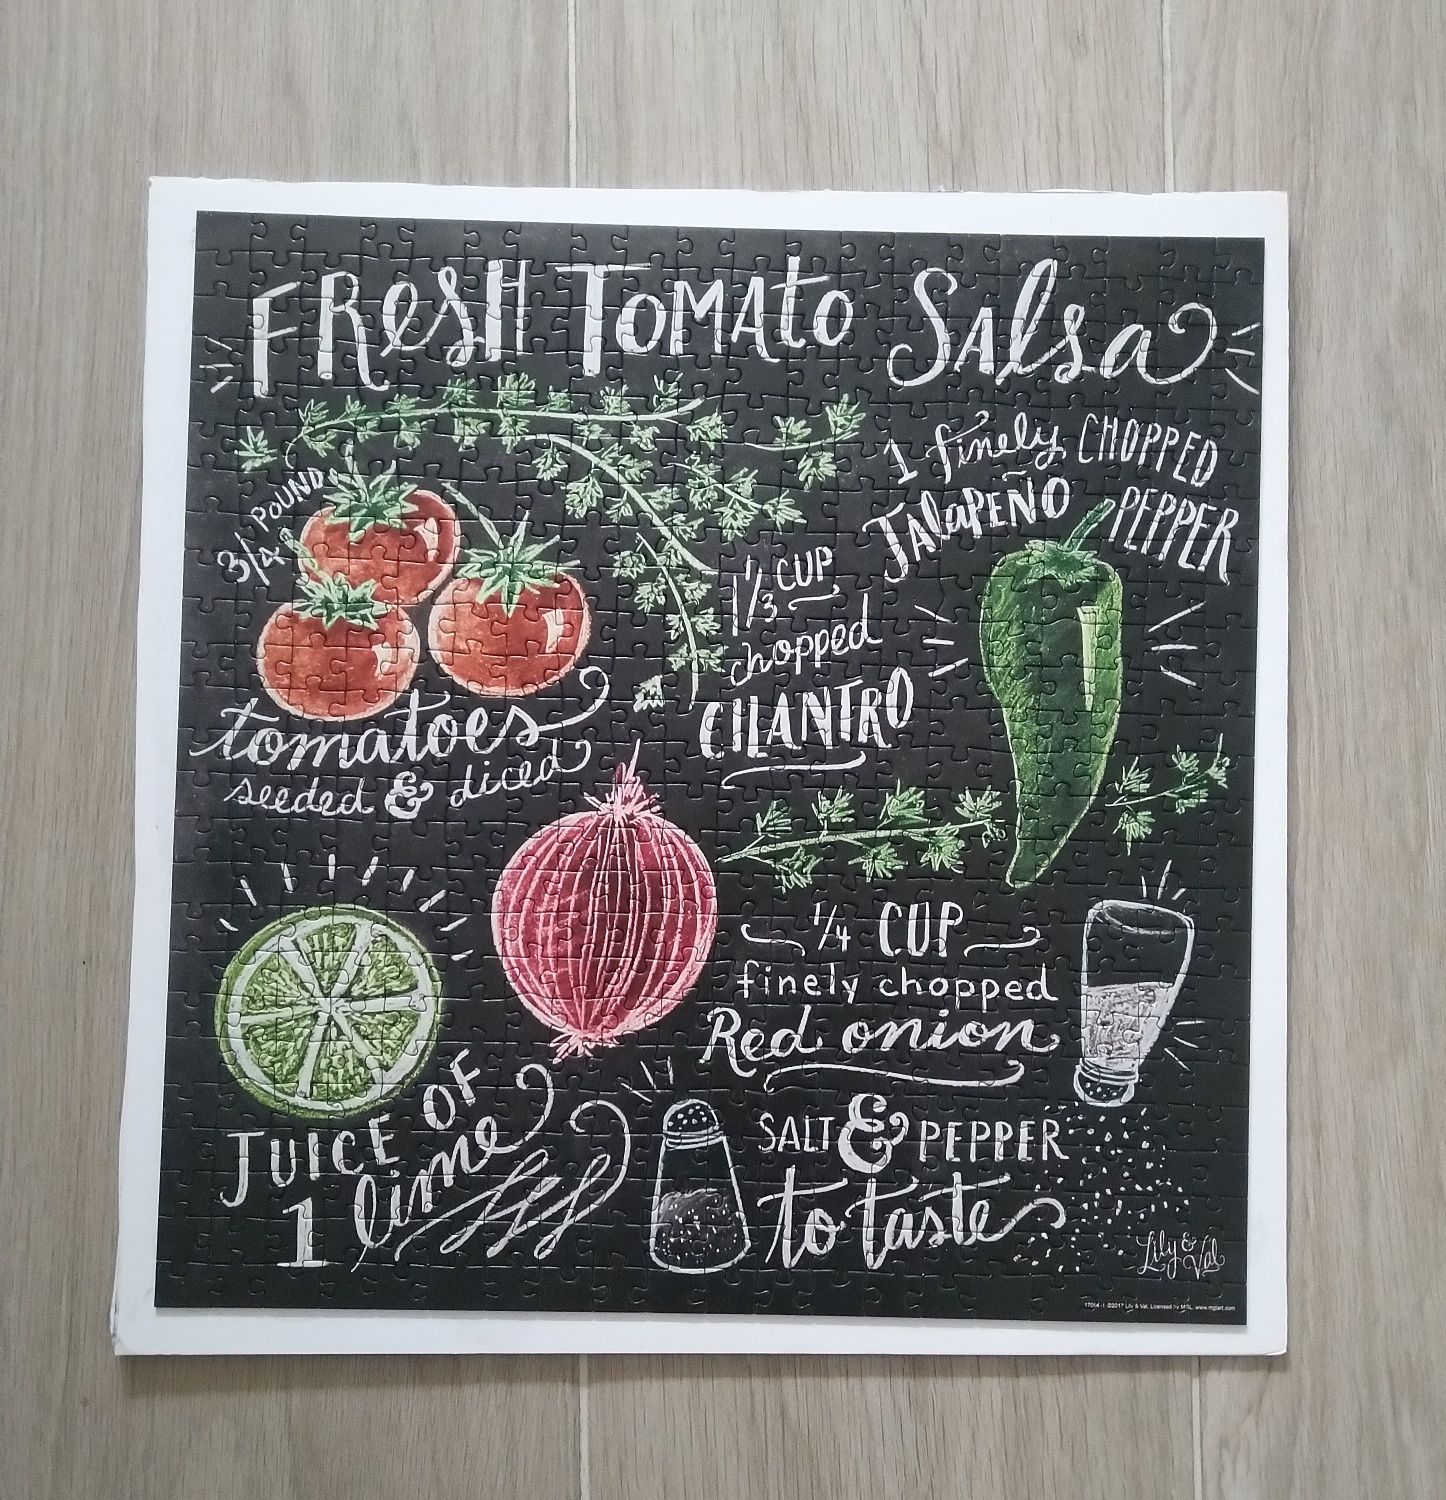 FResH TOMAto Salsa
1 finely CHOPPED
JAlaPEÑO PEPPER
3/4 POUND
tomatoes
seeded & diced
1/3 CUP
chopped
CILANTRO
1/4 CUP
finely chopped
Red onion
JUICE OF
1 lime
SALT & PEPPER
to taste
Lily & Val
©2017 Lily & Val, Licensed by MGL, www.mglart.com